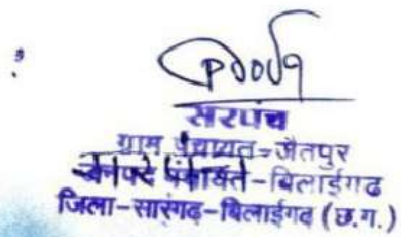 सरपंच
ग्राम पंचायत-जैतपुर
जनपद पंचायत-बिलाईगढ
जिला-सारंगढ-बिलाईगढ (छ.ग.)